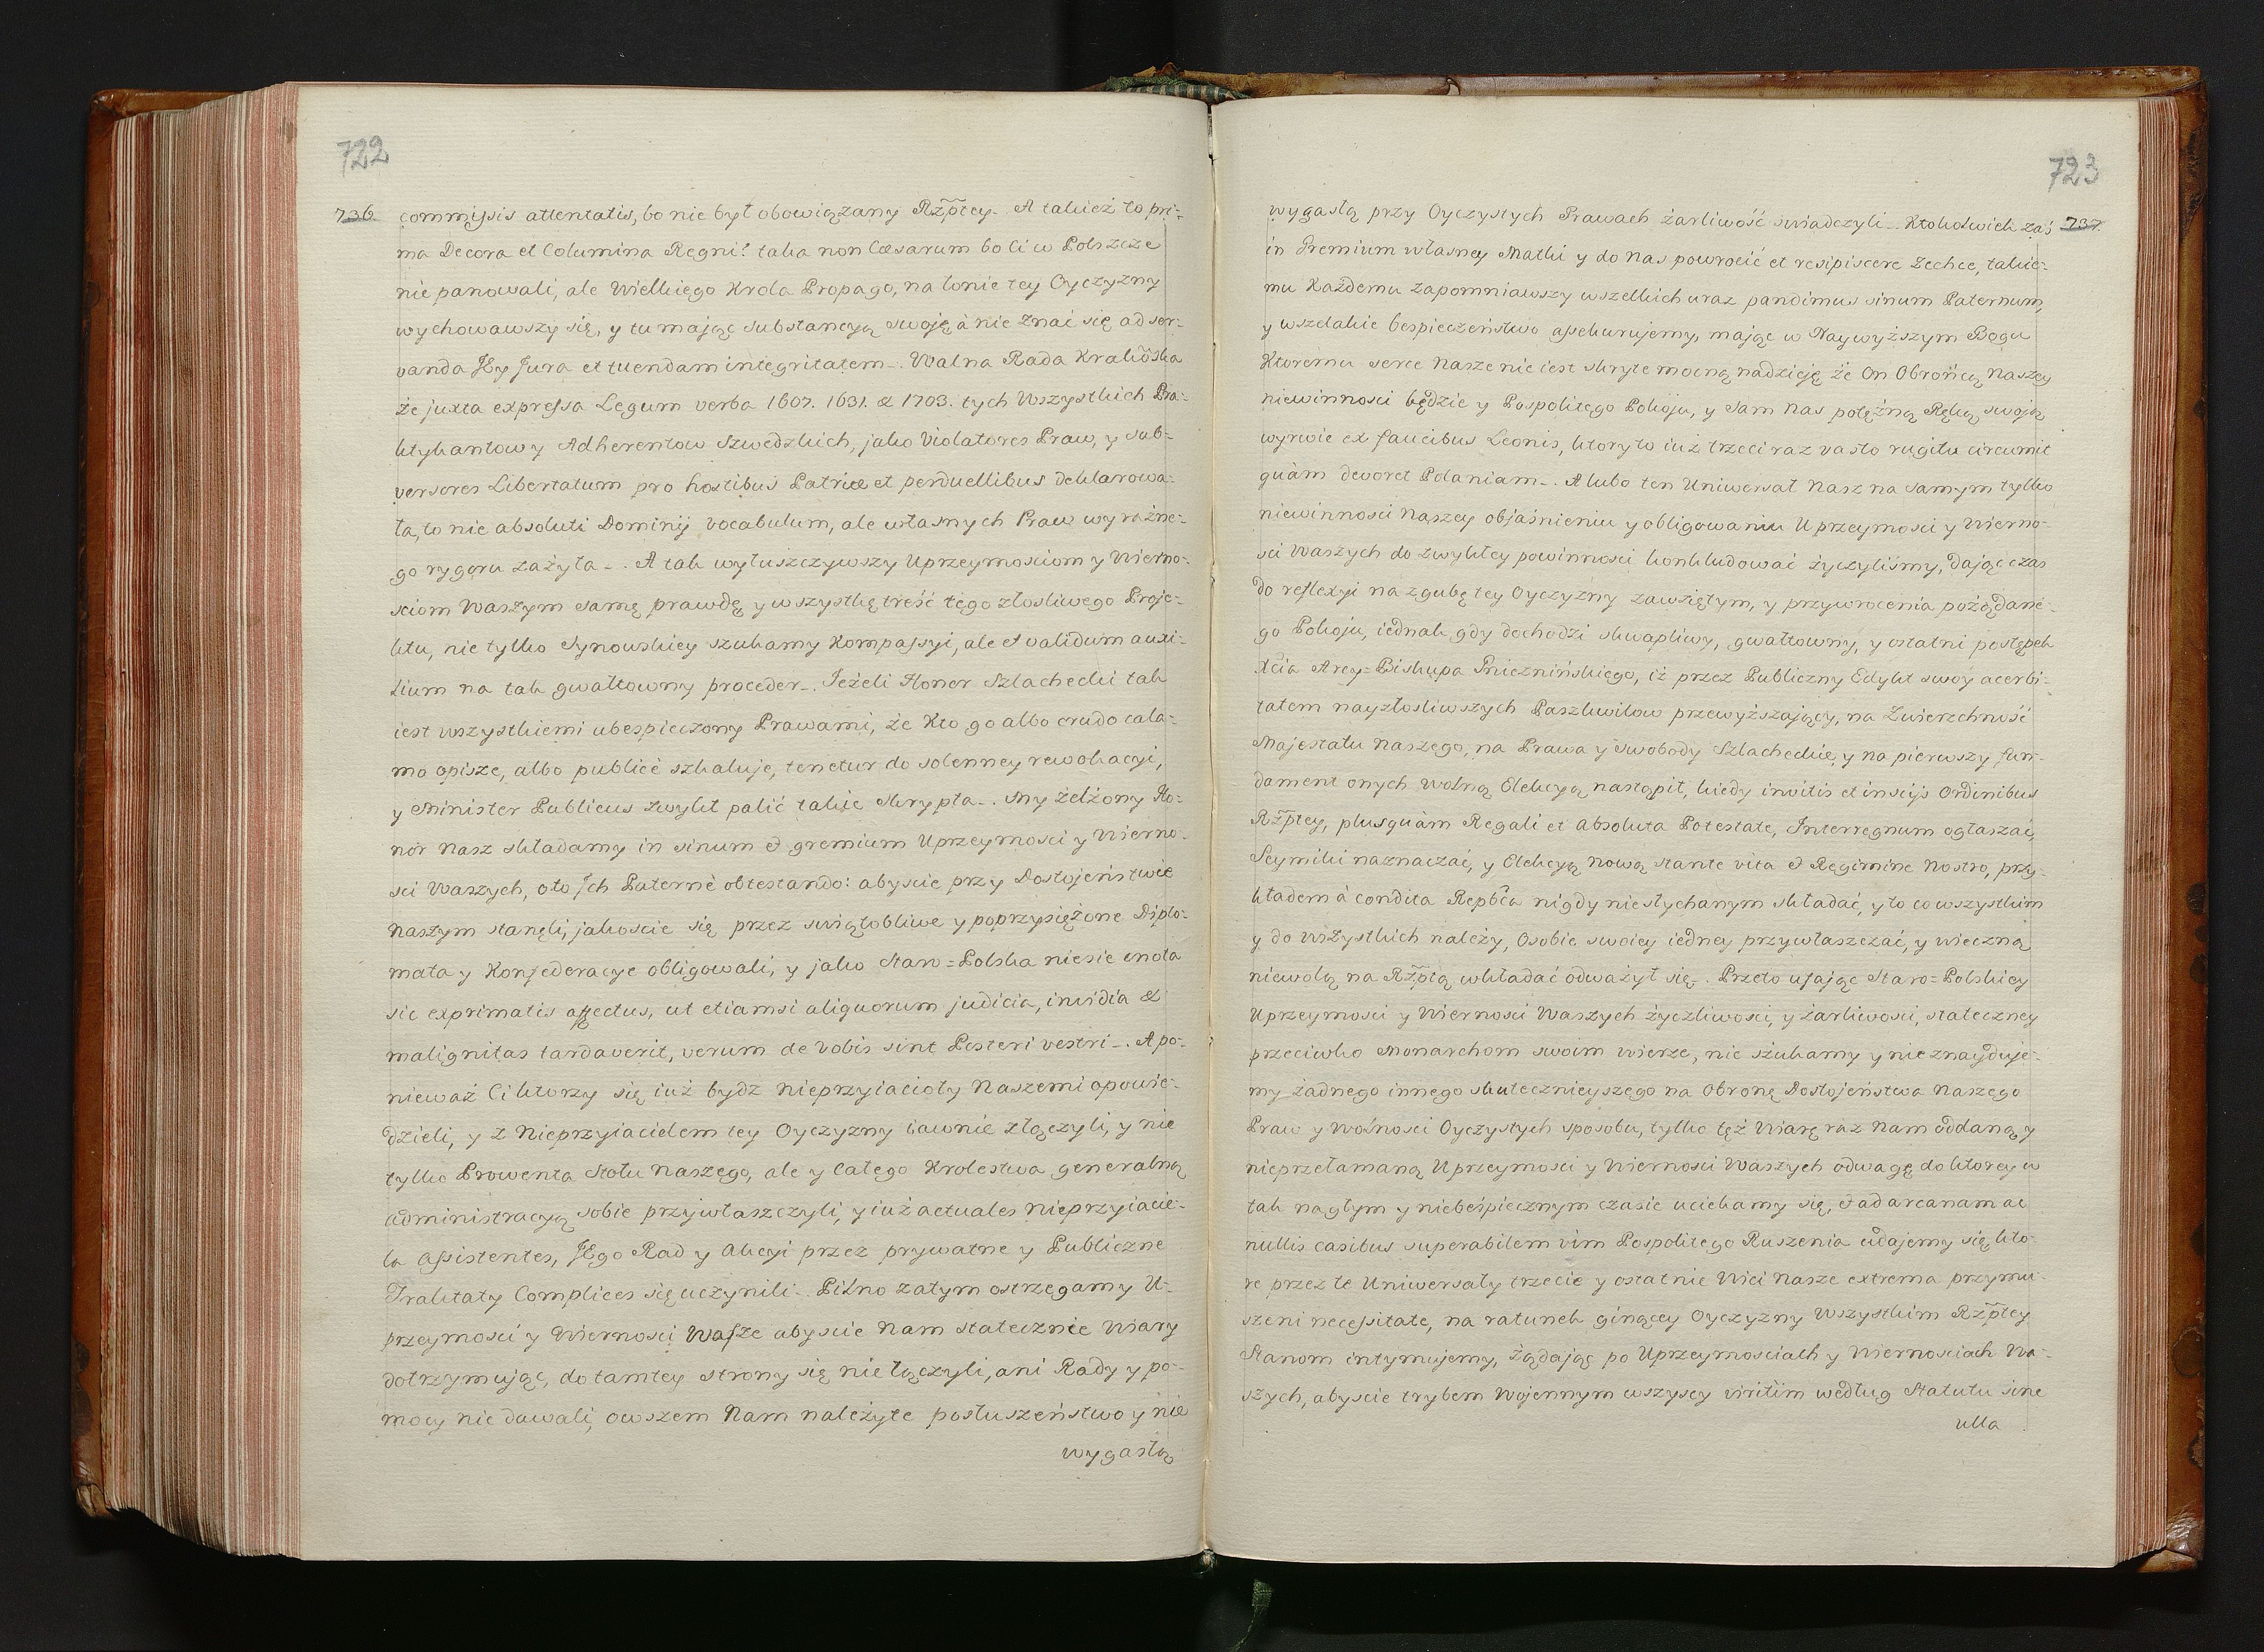 722
736. commissis attentatis, bo nie był obowiązany Rzp̃tey_ A takież to pri-
ma Decora et Columina Regni! taka non Cæsarum bo Ci w Polszcze
nie panowali, ale Wielkiego Krola Propago, na łonie tey Oyczyzny
wychowawszy się, y tu mając substancyą swoję à nie znać się ad ser-
vanda JEy Jura et tuendam integritatem_. Walna Rada Krakowska
że juxta expressa Legum verba 1607. 1631. & 1703. tych Wszystkich Pra-
ktykantow y Adherentow Szwedzkich, jako Violatores Praw, y sub-
versores Libertatum pro hostibus Patriæ et perduellibus deklarowa-
ła, to nie absoluti Dominij vocabulum, ale własnych Praw wyraźne-
go rygoru zażyła_. A tak wyłuszczywszy Uprzeymosciom y Wierno-
sciom Waszym samę prawdę y wszystkę treść tego złosliwego Proje-
ktu, nie tylko Synowskiey szukamy Kompassyi, ale & validum auxi-
lium na tak gwałtowny proceder_. Jeżeli Honor Szlachecki tak
iest wszystkiemi ubespieczony Prawami, że Kto go albo crudo cala-
mo opisze, albo publicè szkaluje, tenetur do solenney rewokacyi,
y Minister Publicus zwykł palić takie Skrypta_. My zelżony Ho-
nor Nasz składamy in sinum & gremium Uprzeymosci y Wierno-
sci Waszych, oto Jch Paternè obtestando: abyscie przy Dostojeństwie
Naszym stanęli, jakoscie się przez swiątobliwe y poprzysiężone Diplo-
mata y Konfederacye obligowali, y jako Staro=Polska niesie cnota
sic exprimatis affectus, ut etiamsi aliquorum judicia, invidia &
malignitas tardaverit, verum de Vobis sint Posteri vestri_. A po-
nieważ Ci ktorzy się iuż bydz Nieprzyiacioły Naszemi opowie-
dzieli, y z Nieprzyiacielem tey Oyczyzny iawnie złączyli, y nie
tylko Prowenta Stołu Naszego, ale y Całego Krolestwa generalną
administracyą sobie przywłaszczyli, y iuż actuales Nieprzyiacie-
la Assistentes, JEgo Rad y Akcyi przez prywatne y Publiczne
Traktaty Complices się uczynili_. Pilno zatym ostrzegamy U-
przeymosci y Wiernosci Wasze abyscie Nam statecznie Wiary
dotrzymując, do tamtey strony się nie łączyli, ani Rady y po-
mocy nie dawali, owszem Nam należyte posłuszeństwo y nie
wygasłą
723
wygasłą przy Oyczystych Prawach żarliwość swiadczyli_. Ktokolwiek zaś 737.
in Gremium własney Matki y do Nas powrocić et resipiscere Zechce, takie-
mu Każdemu zapomniawszy wszelkich uraz pandimus sinum Paternum,
y wszelakie bespieczeństwo assekurujemy, mając w Naywyższym Bogu
Ktoremu serce Nasze nie iest skryte mocną nadzieję że On Obrońcą Naszey
niewinnosci będzie y Pospolitego Pokoju, y Sam Nas potężną Ręką swoją
wyrwie ex faucibus Leonis, ktory to iuż trzeci raz vasto rugitu circumit
quàm devoret Polaniam_. A lubo ten Uniwersał Nasz na samym tylko
niewinnosci Naszey objaśnieniu y obligowaniu Uprzeymosci y Wierno-
sci Waszych do zwykłey powinnosci konkludować życzyliśmy, dając czas
do reflexyi na zgubę tey Oyczyzny zawziętym, y przywrocenia pożądane-
go Pokoju, iednak gdy dochodzi skwapliwy, gwałtowny, y ostatni postępek
Xcia Arcy=Biskupa Gnieznińskiego, iż przez Publiczny Edykt swoy acerbi-
tatem nayzłosliwszych Paszkwilow przewyższający, na Zwierzchność
Majestatu Naszego, na Prawa y Swobody Szlacheckie, y na pierwszy fun-
dament onych wolną Elekcyą nastąpił, kiedy invitis et insciis Ordinibus
Rzp̃tey, plusquàm Regali et Absoluta Potestate, Interregnum ogłaszać,
Seymiki naznaczać, y Elekcyą nową stante vita & Regimine Nostro, przy-
kładem à condita Repb̃ca nigdy niesłychanym składać, y to co wszystkim
y do wszystkich należy, Osobie swoiey iedney przywłaszczać, y wieczną
niewolą na Rzp̃tą wkładać odważył się_. Przeto ufając Staro=Polskiey
Uprzeymosci y Wiernosci Waszych życzliwosci, y żarliwosci, stateczney
przeciwko Monarchom swoim wierze, nie szukamy y nie znayduje-
my żadnego innego skutecznieyszego na Obronę Dostojeństwa Naszego
Praw y Wolnosci Oyczystych sposobu, tylko tęż Wiarę raz Nam oddaną y
nieprzełamaną Uprzeymosci y Wiernosci Waszych odwagę do ktorey w
tak nagłym y niebeśpiecznym czasie uciekamy się, & ad arcanam ac
nullis casibus superabilem vim Pospolitego Ruszenia udajemy się, kto-
re przez te Uniwersały trzecie y ostatnie Wici Nasze extrema przymu-
szeni necessitate, na ratunek ginącey Oyczyzny Wszystkim Rzp̃tey
Stanom intymujemy, Żądając po Uprzeymosciach y Wiernosciach Wa-
szych, abyscie trybem Wojennym wszyscy viritim według Statutu sine
ulla